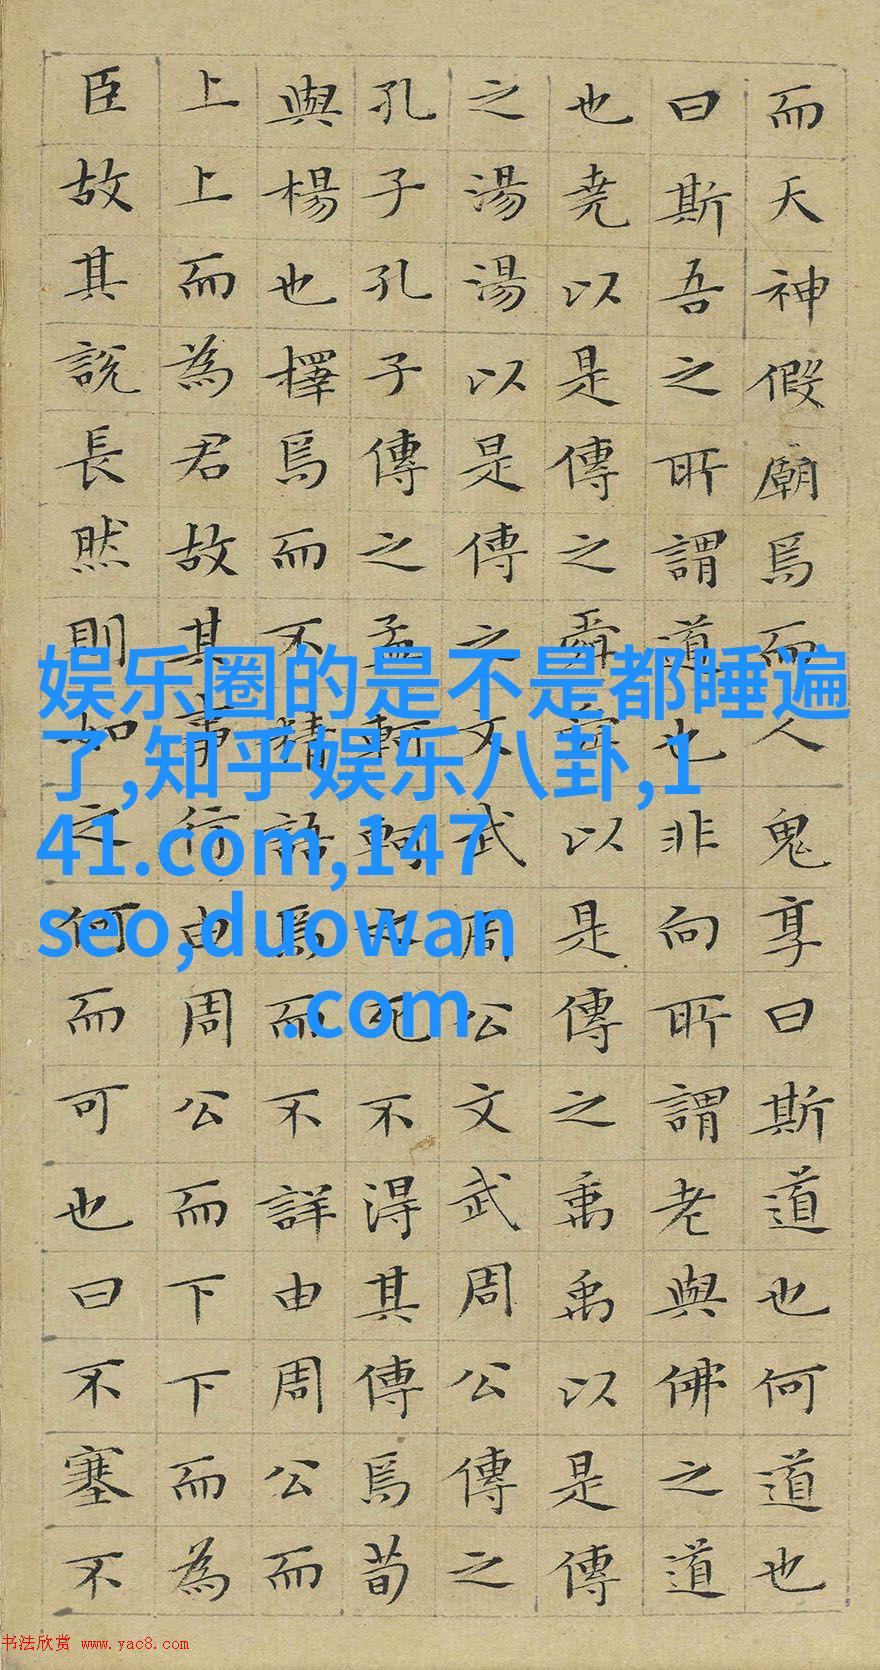 而天神假廟焉而人鬼享曰斯道也何道也
曰斯吾之所謂道也非向所謂老與佛之道
也堯以是傳之舜舜以是傳之禹禹以是傳
之湯湯以是傳之文武周公文武周公傳之
孔子孔子傳之孟軻軻之死不得其傳焉荀
與楊也擇焉而不精語焉而不詳由周公而
上上而為君故其事行由周公而下下而為
臣故其說長然則如之何而可也曰不塞不
娱乐圈的是不是都睡遍
了,知乎娱乐八卦,1
41.com,147
seo,duowan
.com
书法欣赏 www.yac8.com